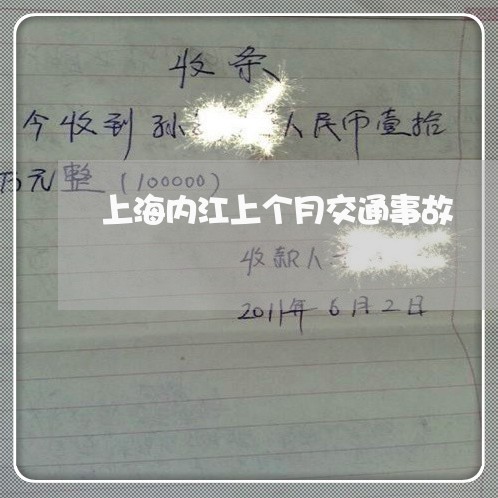 收条
今收到孙 人民币壹拾
万元整(100000)
上海内江上个月交通事故
收款人
2011年6月2日